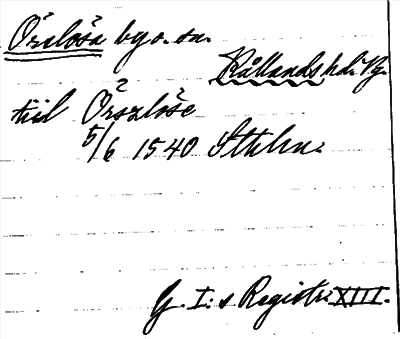 Örslösa by o. sn.
Kållands hd. Vg.
till Örszlöse
5/6 1540 Sthlm.
G. I:s Registr. XIII.